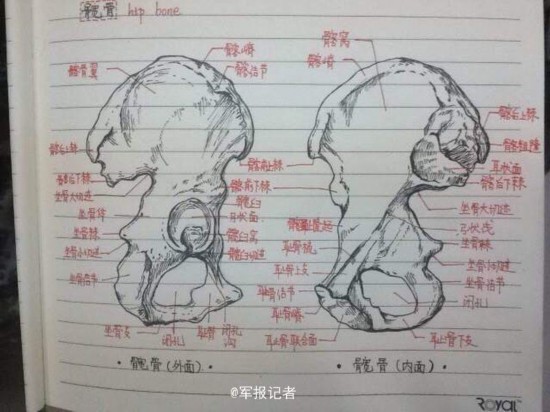 髋骨 hip bone
髂嵴
髂结节
髂骨翼
髂后上棘
髂后下棘
坐骨大切迹
坐骨体
坐骨棘
坐骨小切迹
坐骨结节
坐骨支
闭孔
耻骨
闭孔
沟
髂前上棘
髂前下棘
髋臼
月状面
髋臼窝
髋臼切迹
•髋骨(外面)•
髂窝
髂嵴
髂后上棘
髂粗隆
耳状面
髂后下棘
坐骨大切迹
弓状线
坐骨棘
坐骨小切迹
坐骨结节
闭孔
耻骨下支
耻骨梳
耻骨上支
耻骨结节
耻骨嵴
耻骨联合面
•髋骨(内面)•
@军报记者
ROYAL